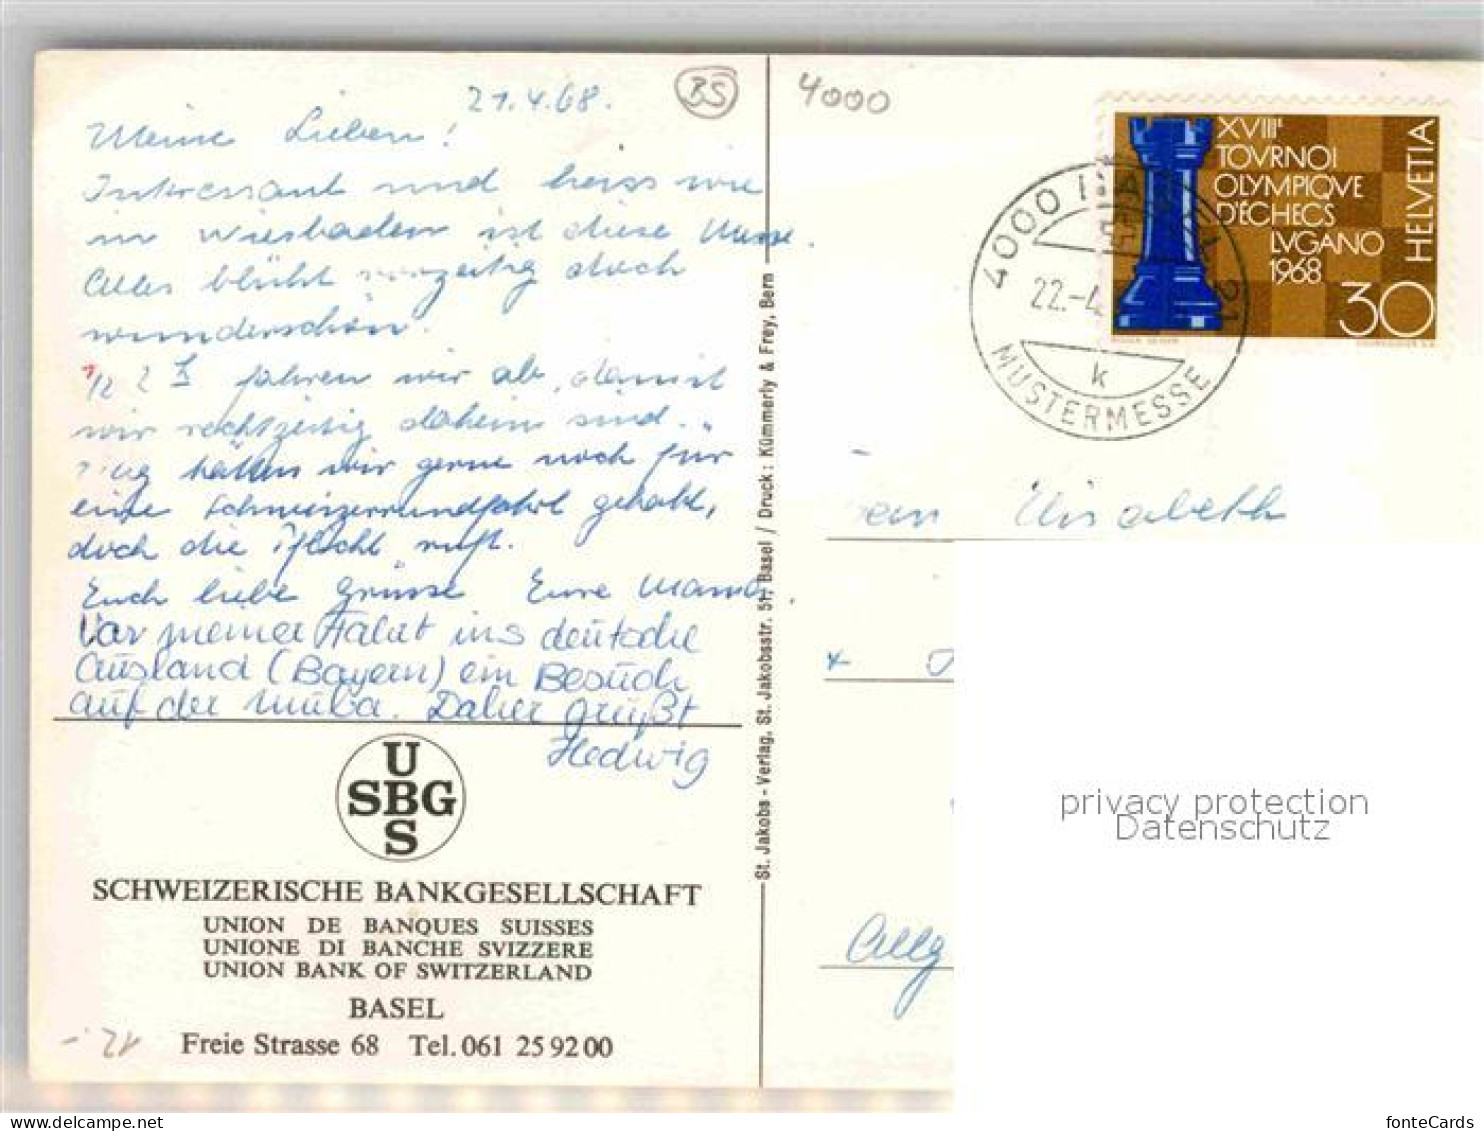 21.4.68.
BS
4000
Meine Lieben!
Interessant und heiss wie
in Wiesbaden ist diese Messe.
Alles blüht vorzeitig doch
wunderschön.
1/2 2 h fahren wir ab, damit
wir rechtzeitig daheim sind.
hätten wir gerne noch für
eine Schweizerrundfahrt gehabt,
doch die Pflicht ruft.
Euch liebe Grüsse Eure Mama.
Vor meiner Fahrt ins deutsche
Ausland (Bayern) ein Besuch
auf der Muba. Daher grüßt
Hedwig
UBS
SBG
SCHWEIZERISCHE BANKGESELLSCHAFT
UNION DE BANQUES SUISSES
UNIONE DI BANCHE SVIZZERE
UNION BANK OF SWITZERLAND
BASEL
Freie Strasse 68 Tel. 061 25 92 00
St. Jakobs - Verlag, St. Jakobsstr. 51, Basel / Druck: Kümmerly & Frey, Bern
XVIIIe
TOVRNOI
OLYMPIQVE
D'ÉCHECS
LVGANO
1968
HELVETIA
30
4000 BASEL 21
22.-4.
k
MUSTERMESSE
Elisabeth
Allg
privacy protection
Datenschutz
fonteCards